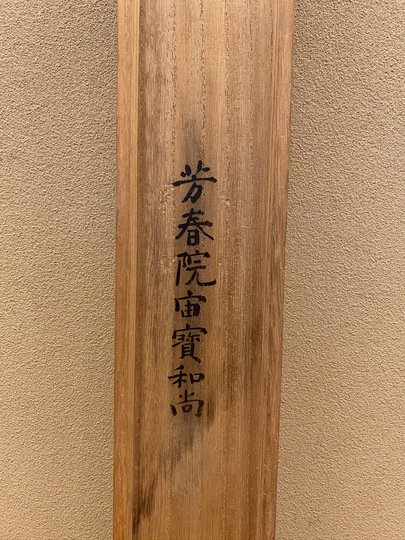 芳春院宙寳和尚